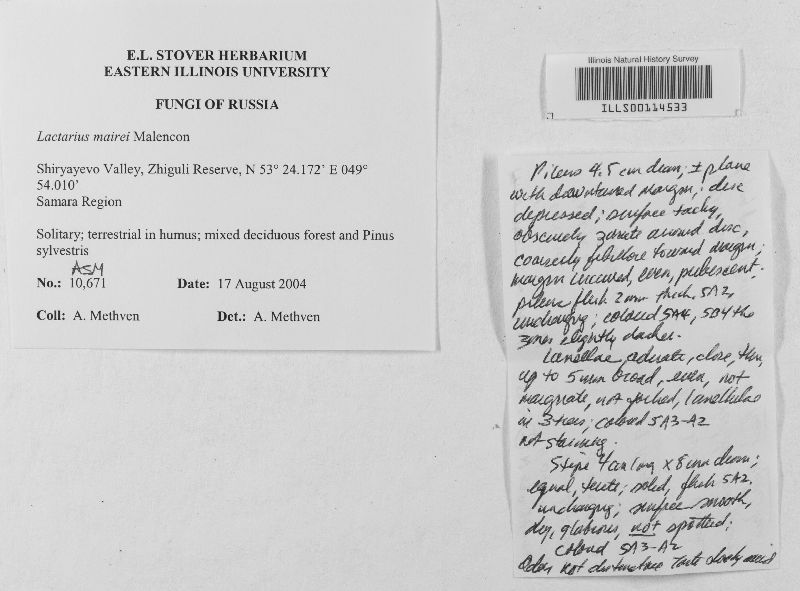 E.L. STOVER HERBARIUM
EASTERN ILLINOIS UNIVERSITY
FUNGI OF RUSSIA
Lactarius mairei Malencon
Shiryayevo Valley, Zhiguli Reserve, N 53° 24.172’ E 049°
54.010’
Samara Region
Solitary; terrestrial in humus; mixed deciduous forest and Pinus
sylvestris
ASM
No.: 10,671 Date: 17 August 2004
Coll: A. Methven Det.: A. Methven
Illinois Natural History Survey
ILLS00114533
Pileus 4.5 cm diam; ± plane
with downturned margin; disc
depressed; surface tacky,
obscurely zonate around disc,
coarsely fibrillose toward margin;
margin incurved, even, pubescent;
pileus flesh 2 mm thick, 5A2,
unchanging; colored 5A4, 5B4 the
zones slightly darker.
Lamellae adnate, close, thin,
up to 5 mm broad, even, not
marginate, not forked, lamellulae
in 3 tiers; colored 5A3-A2
not staining.
Stipe 4 cm long x 8 mm diam;
equal, terete; solid, flesh 5A2,
unchanging; surface smooth,
dry, glabrous, not spotted;
colored 5A3-A2
Odor not distinctive Taste slowly acrid